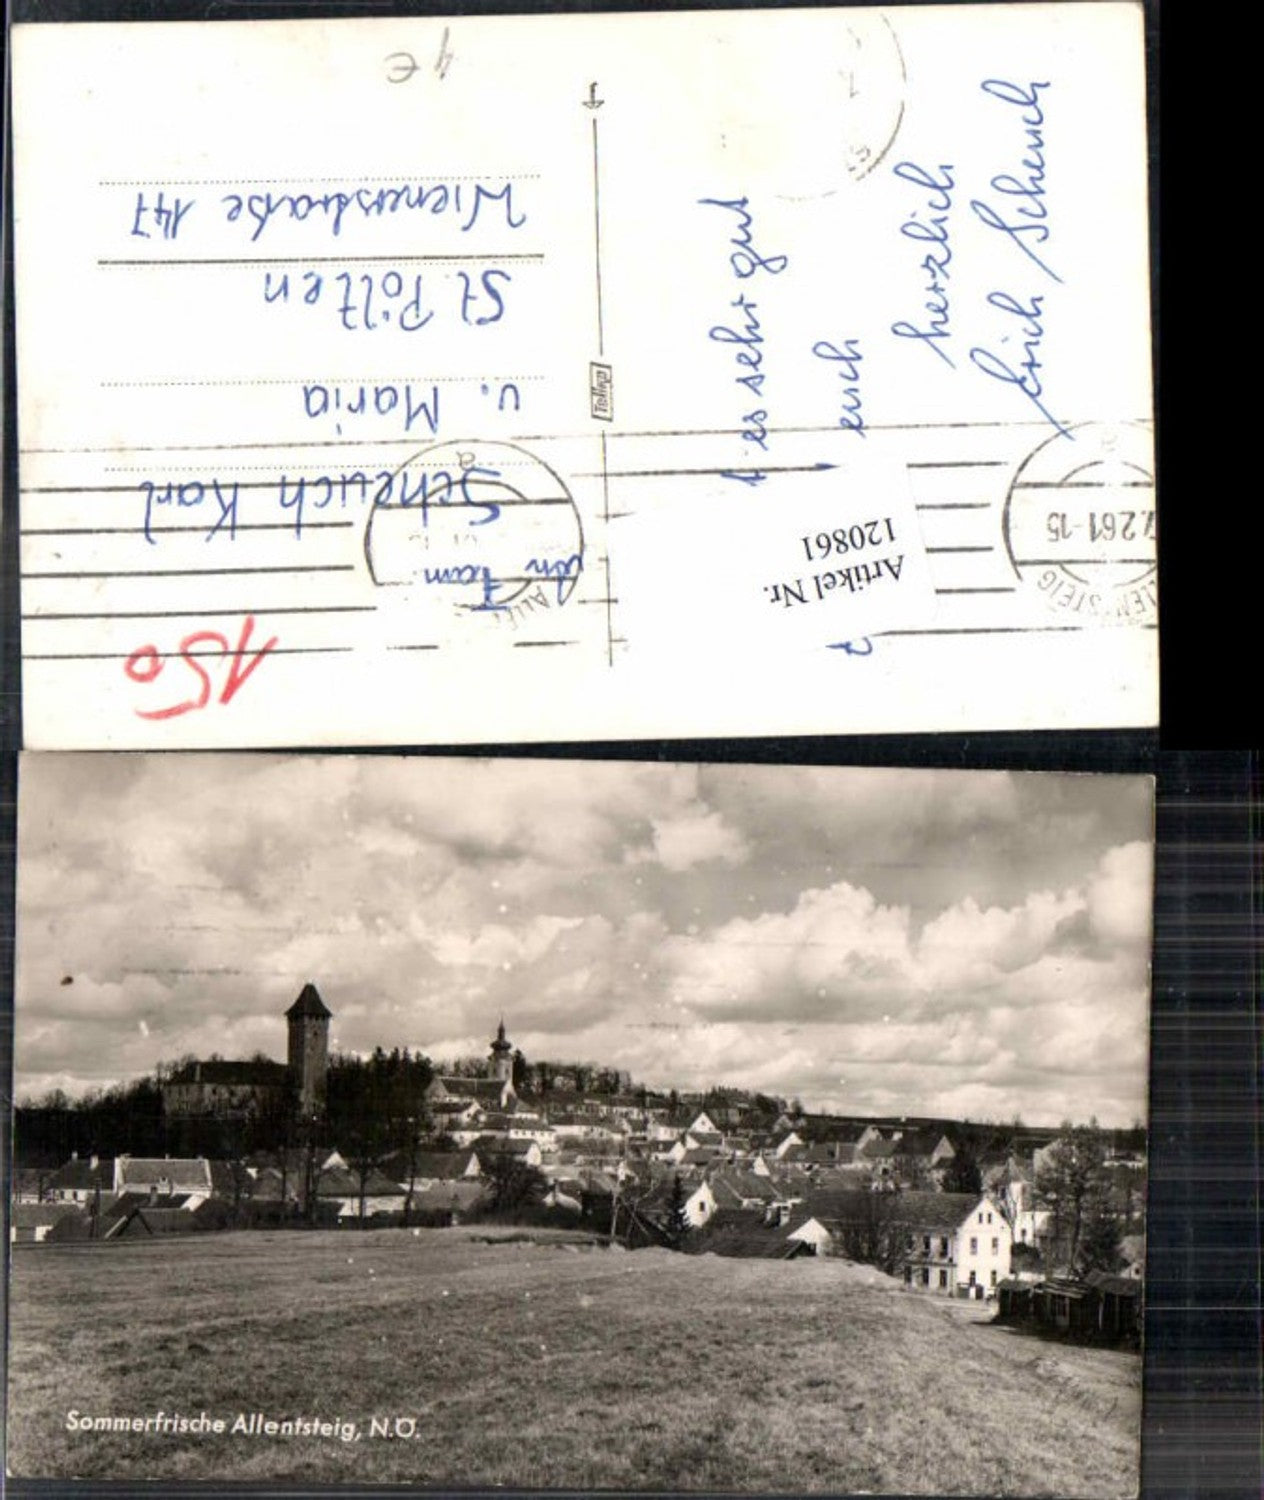 t es sehr gut
euch
herzlich
Erich Scheuch
Artikel Nr.
120861
7.2.61-15
Tellko
Fam.
Scheuch Karl
u. Maria
St. Pölten
Wienerstraße 147
150
4 €
Sommerfrische Allentsteig, N.Ö.